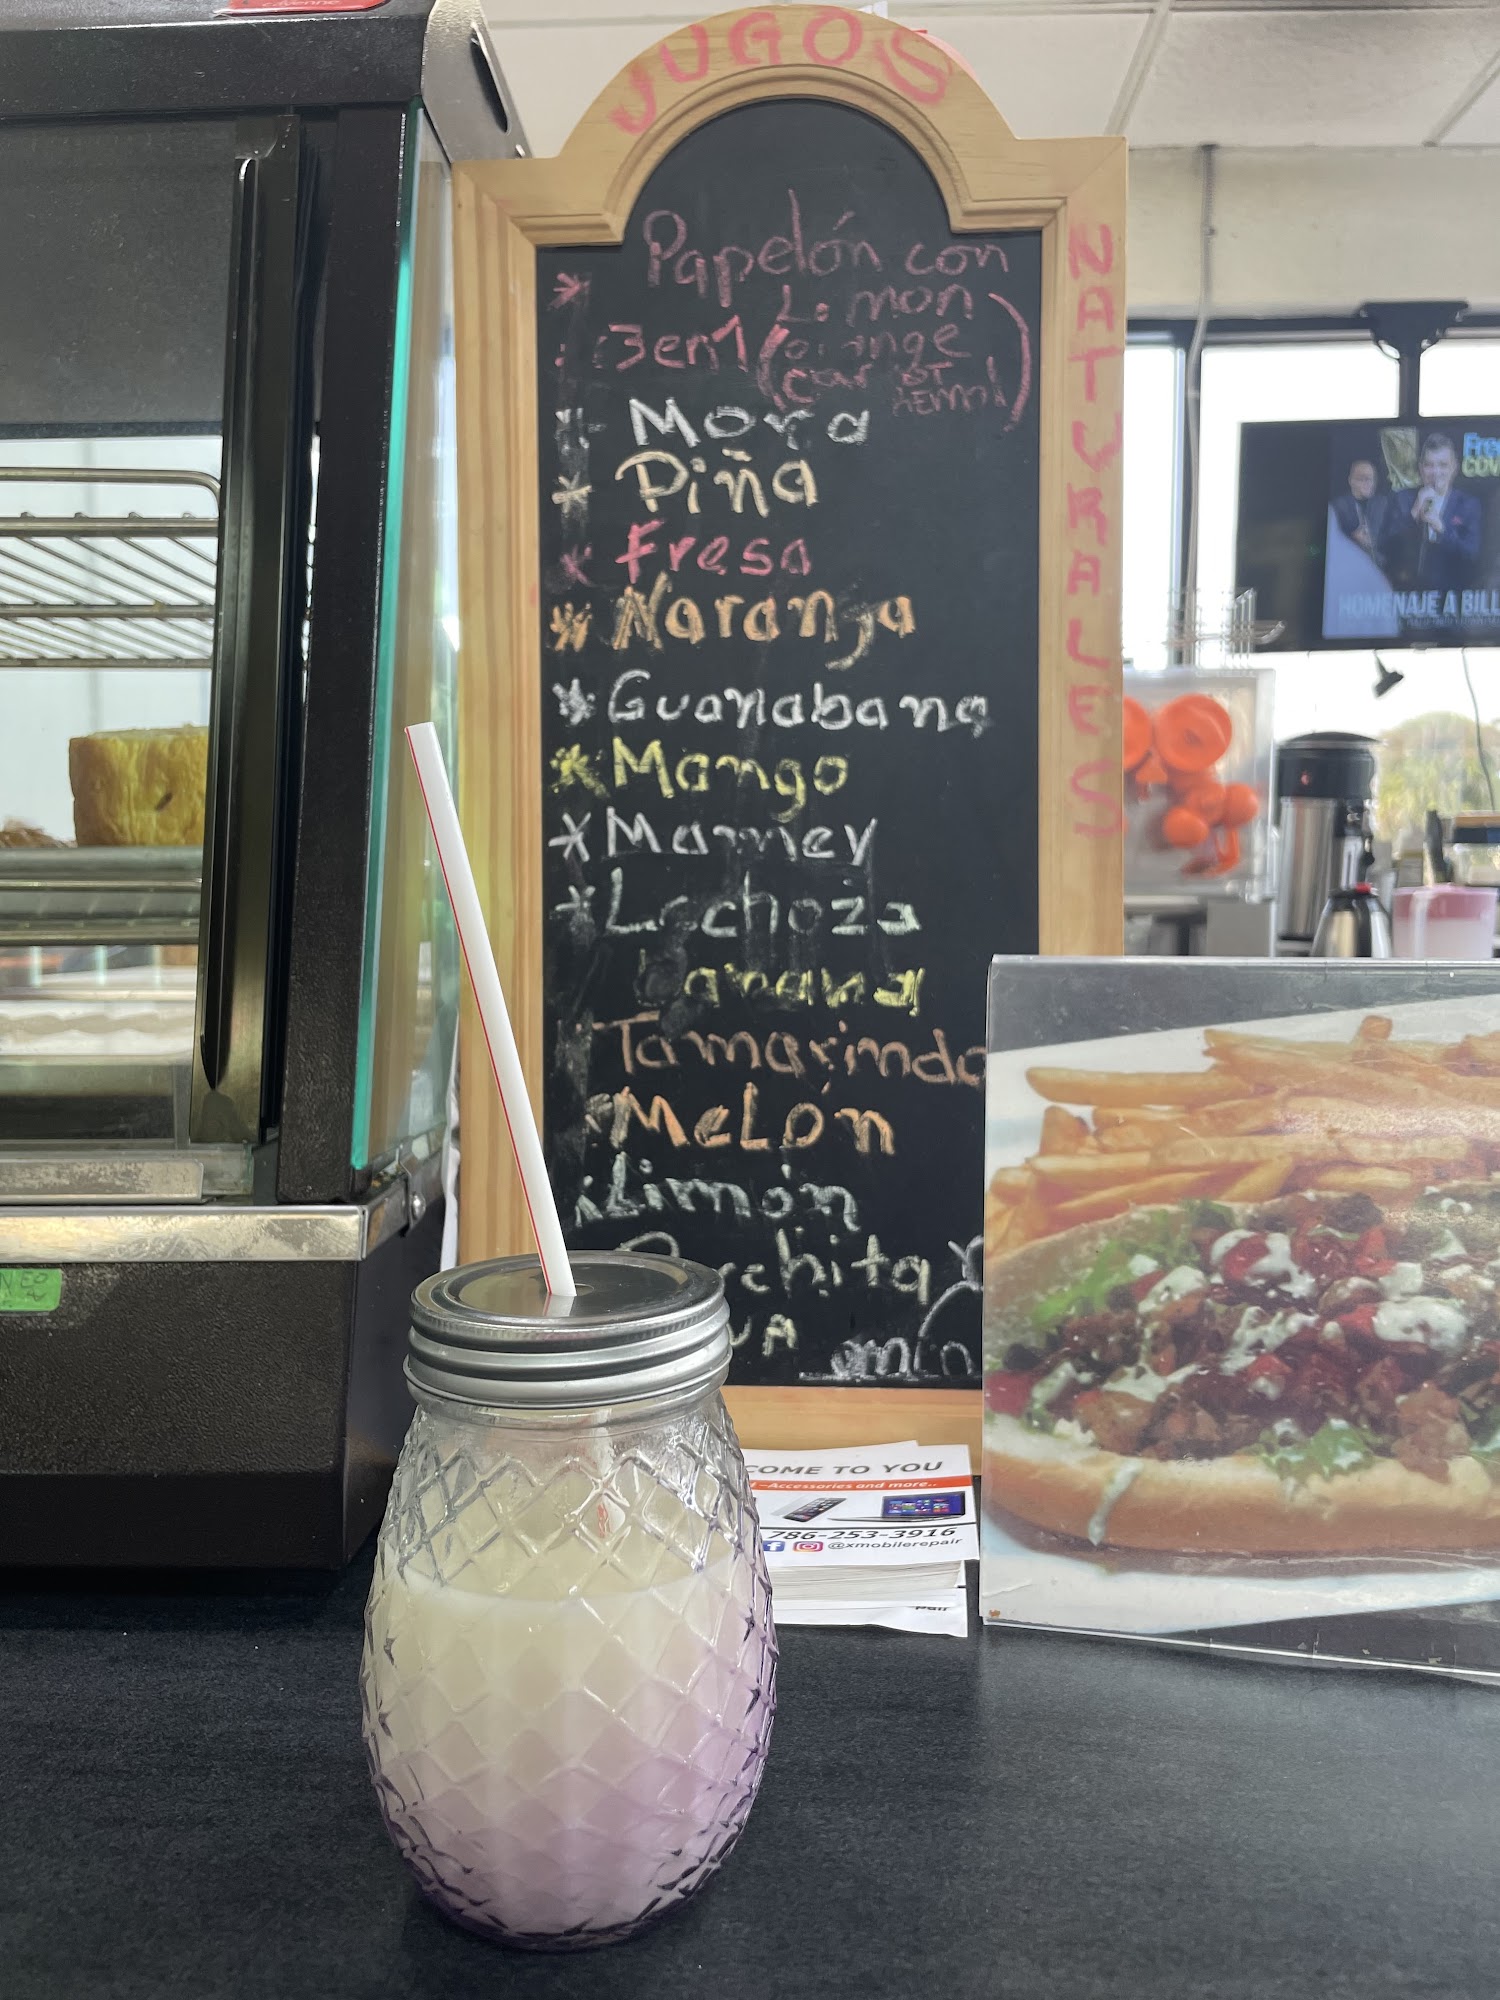 JUGOS
NATURALES
* Papelón con
Limon
3 en 1 (orange
car BT
* Mora
* Piña
* Fresa
* Naranja
* Guanabana
* Mango
* Mamey
* Lechoza
banana
Tamarindo
Melón
Limón
Parchita
COME TO YOU
-Accessories and more..
786-253-3916
@xmobilerepair
HOMENAJE A BILL